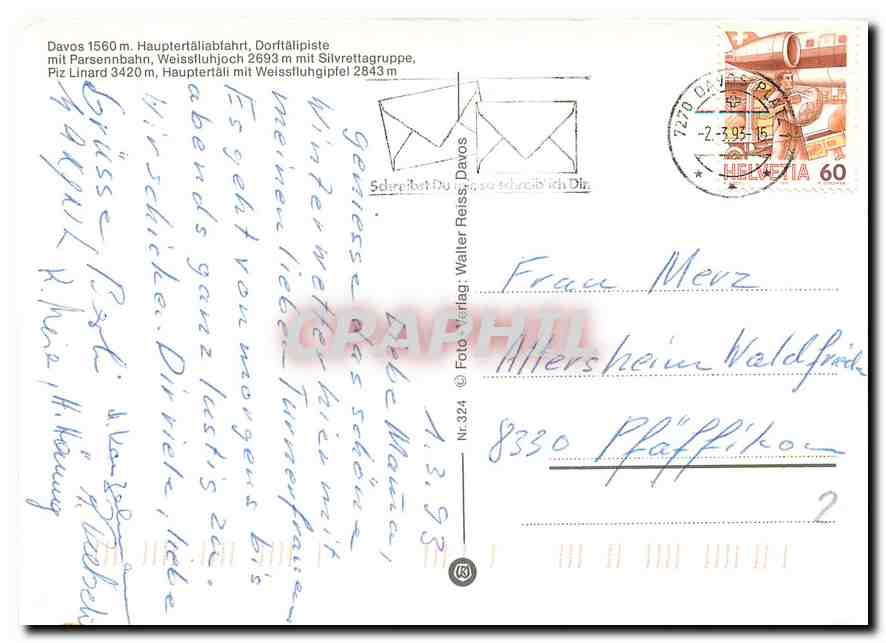 Davos 1560 m. Hauptertäliabfahrt, Dorftälipiste
mit Parsennbahn, Weissfluhjoch 2693 m mit Silvrettagruppe,
Piz Linard 3420 m, Hauptertäli mit Weissfluhgipfel 2843 m
Schreibst Du mir, so schreib' ich Dir.
7270 DAVOS PLATZ
-2.-3.93-15
HELVETIA 60
1.3.93
Liebe Mama,
geniesse das schöne
Winterwetter hier mit
meinen lieben Turnerfrauen
Es geht von morgens bis
abends ganz lustig zu.
Wir schicken Dir viele, liebe
Grüsse,
K. Meier, H. Hönung
Nr. 324 © Foto Verlag: Walter Reiss, Davos
Frau Merz
Altersheim Waldfriede
8330 Pfäffikon
2
CPAPHIL